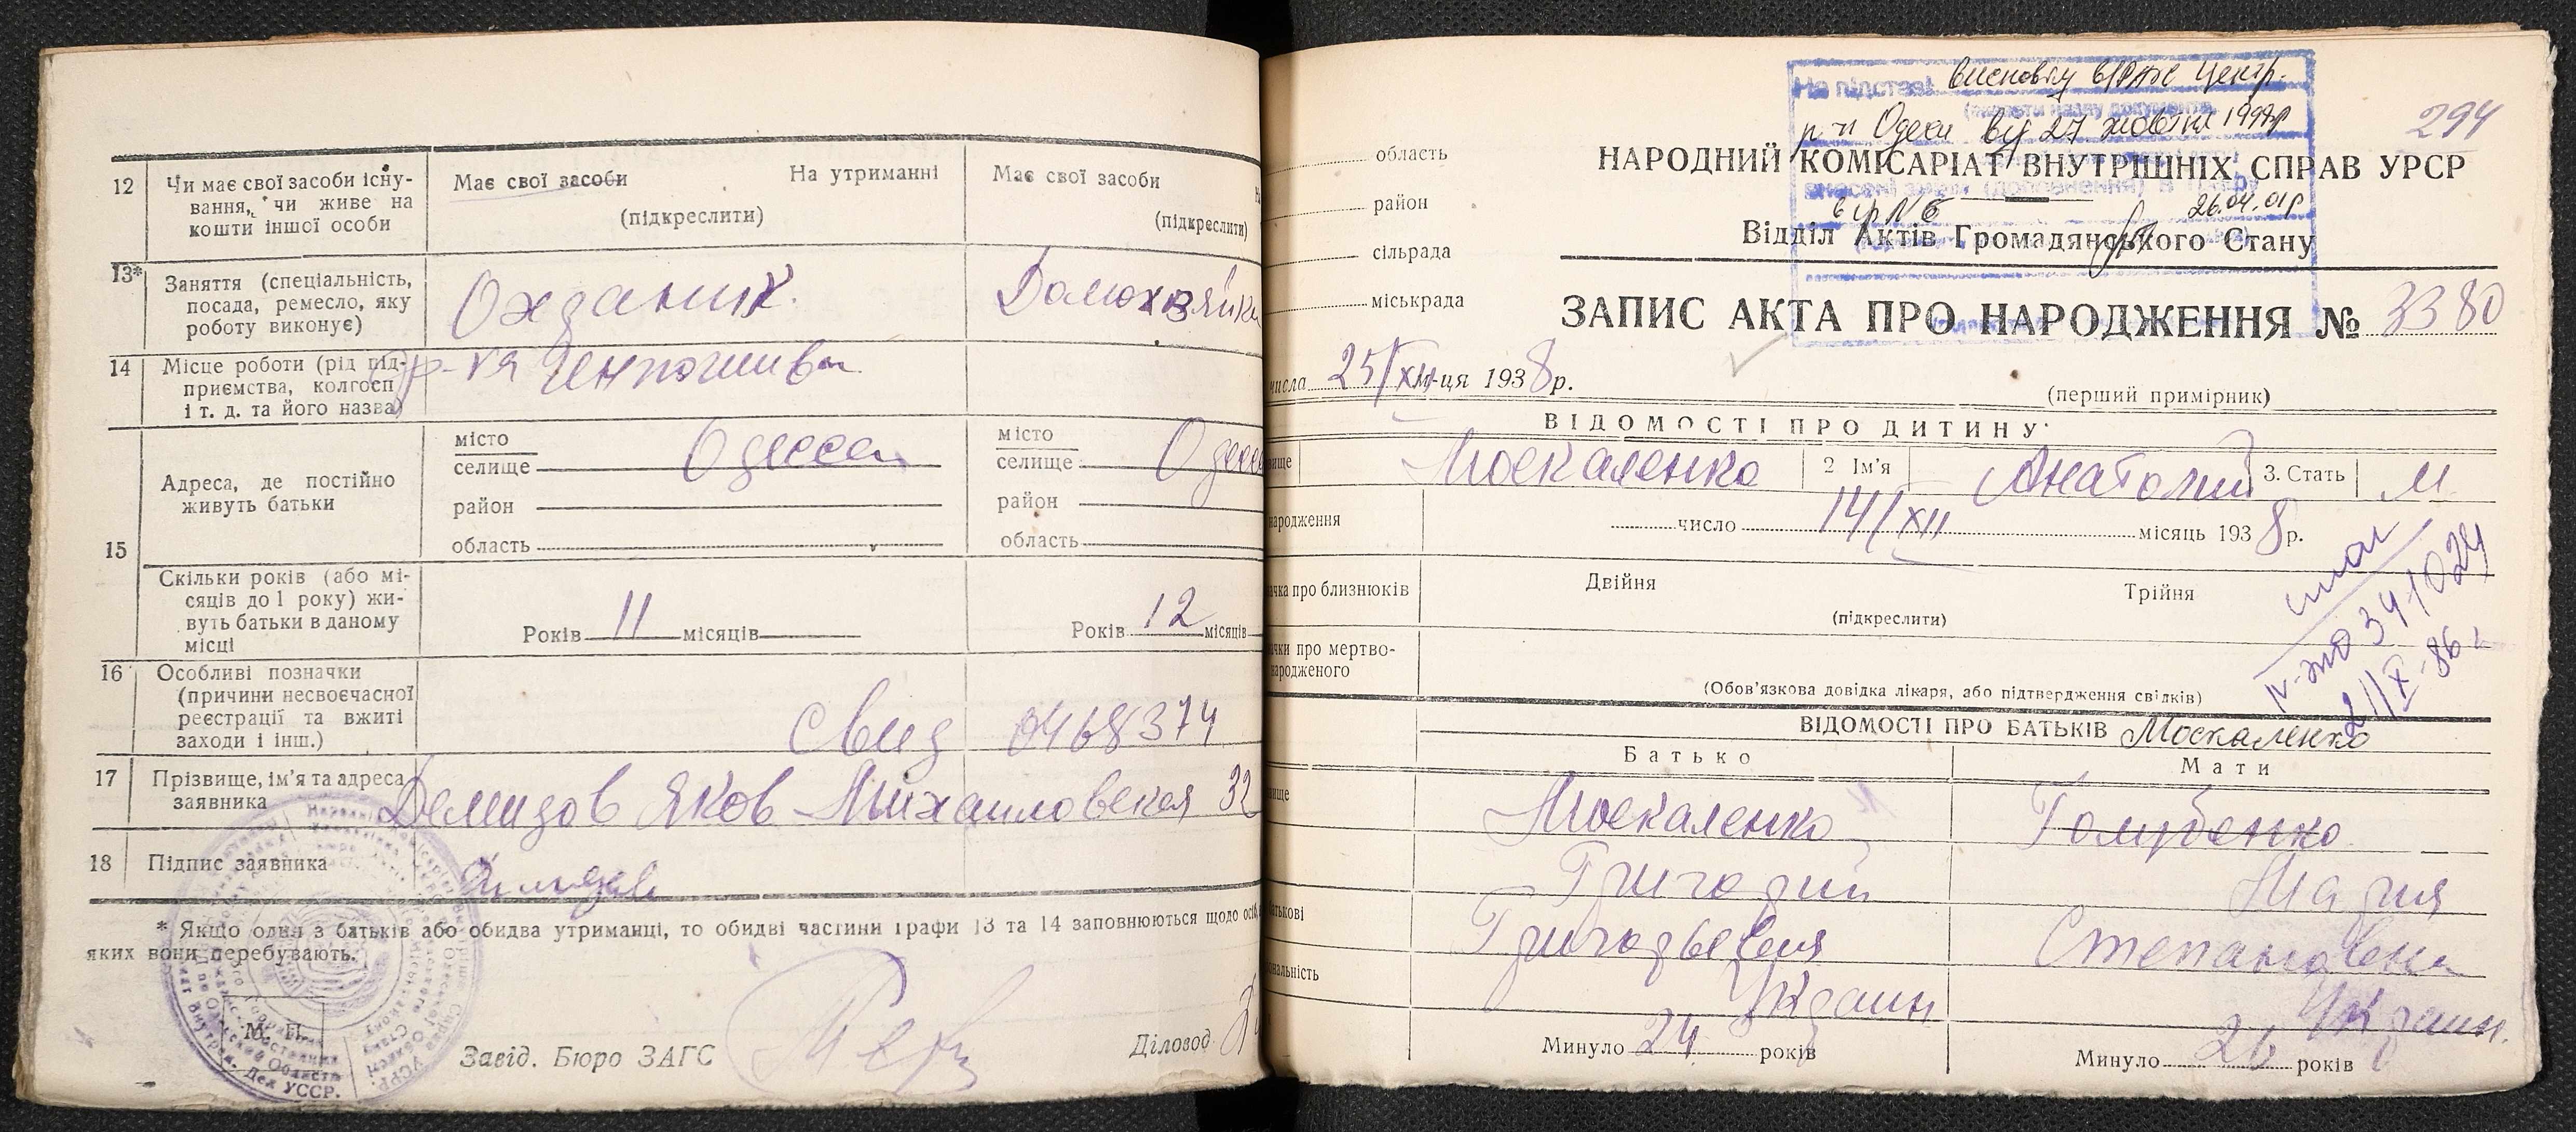 12
Чи має свої засоби існу-
вання, чи живе на
кошти іншої особи
Має свої засоби
На утриманні
(підкреслити)
Має свої засоби
(підкреслити)
13*
Заняття (спеціальність,
посада, ремесло, яку
роботу виконує)
Охраник.
Домохозяйка
14
Місце роботи (рід під-
приємства, колгосп
і т. д. та його назва)
15
Адреса, де постійно
живуть батьки
місто
селище Одесса
район
область
місто
селище
район
область
Скільки років (або мі-
сяців до 1 року) жи-
вуть батьки в даному
місці
Років 11 місяців
Років 12 місяців
16
Особливі позначки
(причини несвоєчасної
реєстрації та вжиті
заходи і інш.)
Свид 0468374
17
Прізвище, ім'я та адреса
заявника
Демидов Яков Михайловская 32
18
Підпис заявника
* Якщо один з батьків або обидва утриманці, то обидві частини графи 13 та 14 заповнюються щодо осіб,
яких вони перебувають.
М. П.
Завід. Бюро ЗАГС
Діловод
На підставі висновку вРАЖС Центр.
р-н Одеси від 27 жовтня
26.04.01р
294
область
район
сільрада
міськрада
НАРОДНИЙ КОМІСАРІАТ ВНУТРІШНІХ СПРАВ УРСР
Відділ Актів Громадянського Стану
ЗАПИС АКТА ПРО НАРОДЖЕННЯ № 3380
числа 25/XII м-ця 1938р.
(перший примірник)
ВІДОМОСТІ ПРО ДИТИНУ
Москаленко
2 Ім'я Анатолий
3. Стать М
народження
число 14/XII місяць 1938р.
близнюків
Двійня
Трійня
(підкреслити)
про мертво-
народженого
(Обов'язкова довідка лікаря, або підтвердження свідків)
IV-жо 341024
21/X-86
ВІДОМОСТІ ПРО БАТЬКІВ Москаленко
Батько
Мати
Москаленко
Голубенко
Григорий
Мария
Григорьевич
Степановна
Украин
Украин.
Минуло 24 років
Минуло 26 років